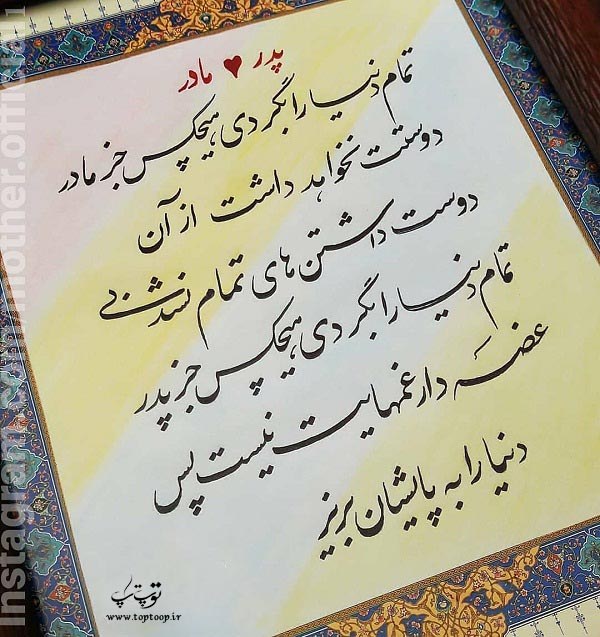 پدر ♥ مادر
تمام دنیا را بگردی هیچکس جز مادر
دوستت نخواهد داشت از آن
دوست داشتن های تمام نشدنی
تمام دنیا را بگردی هیچکس جز پدر
غصه دار غمهایت نیست پس
دنیا را به پایشان بریز
توپ تاپ
www.toptoop.ir